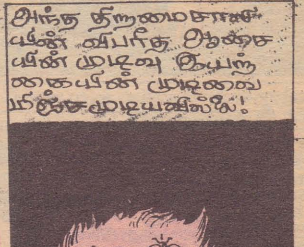 அந்த திறமைசாலி
யின் விபரீத ஆசை
யின் முடிவு இயற்
கையின் முடிவை
மிஞ்ச முடியவில்லை!